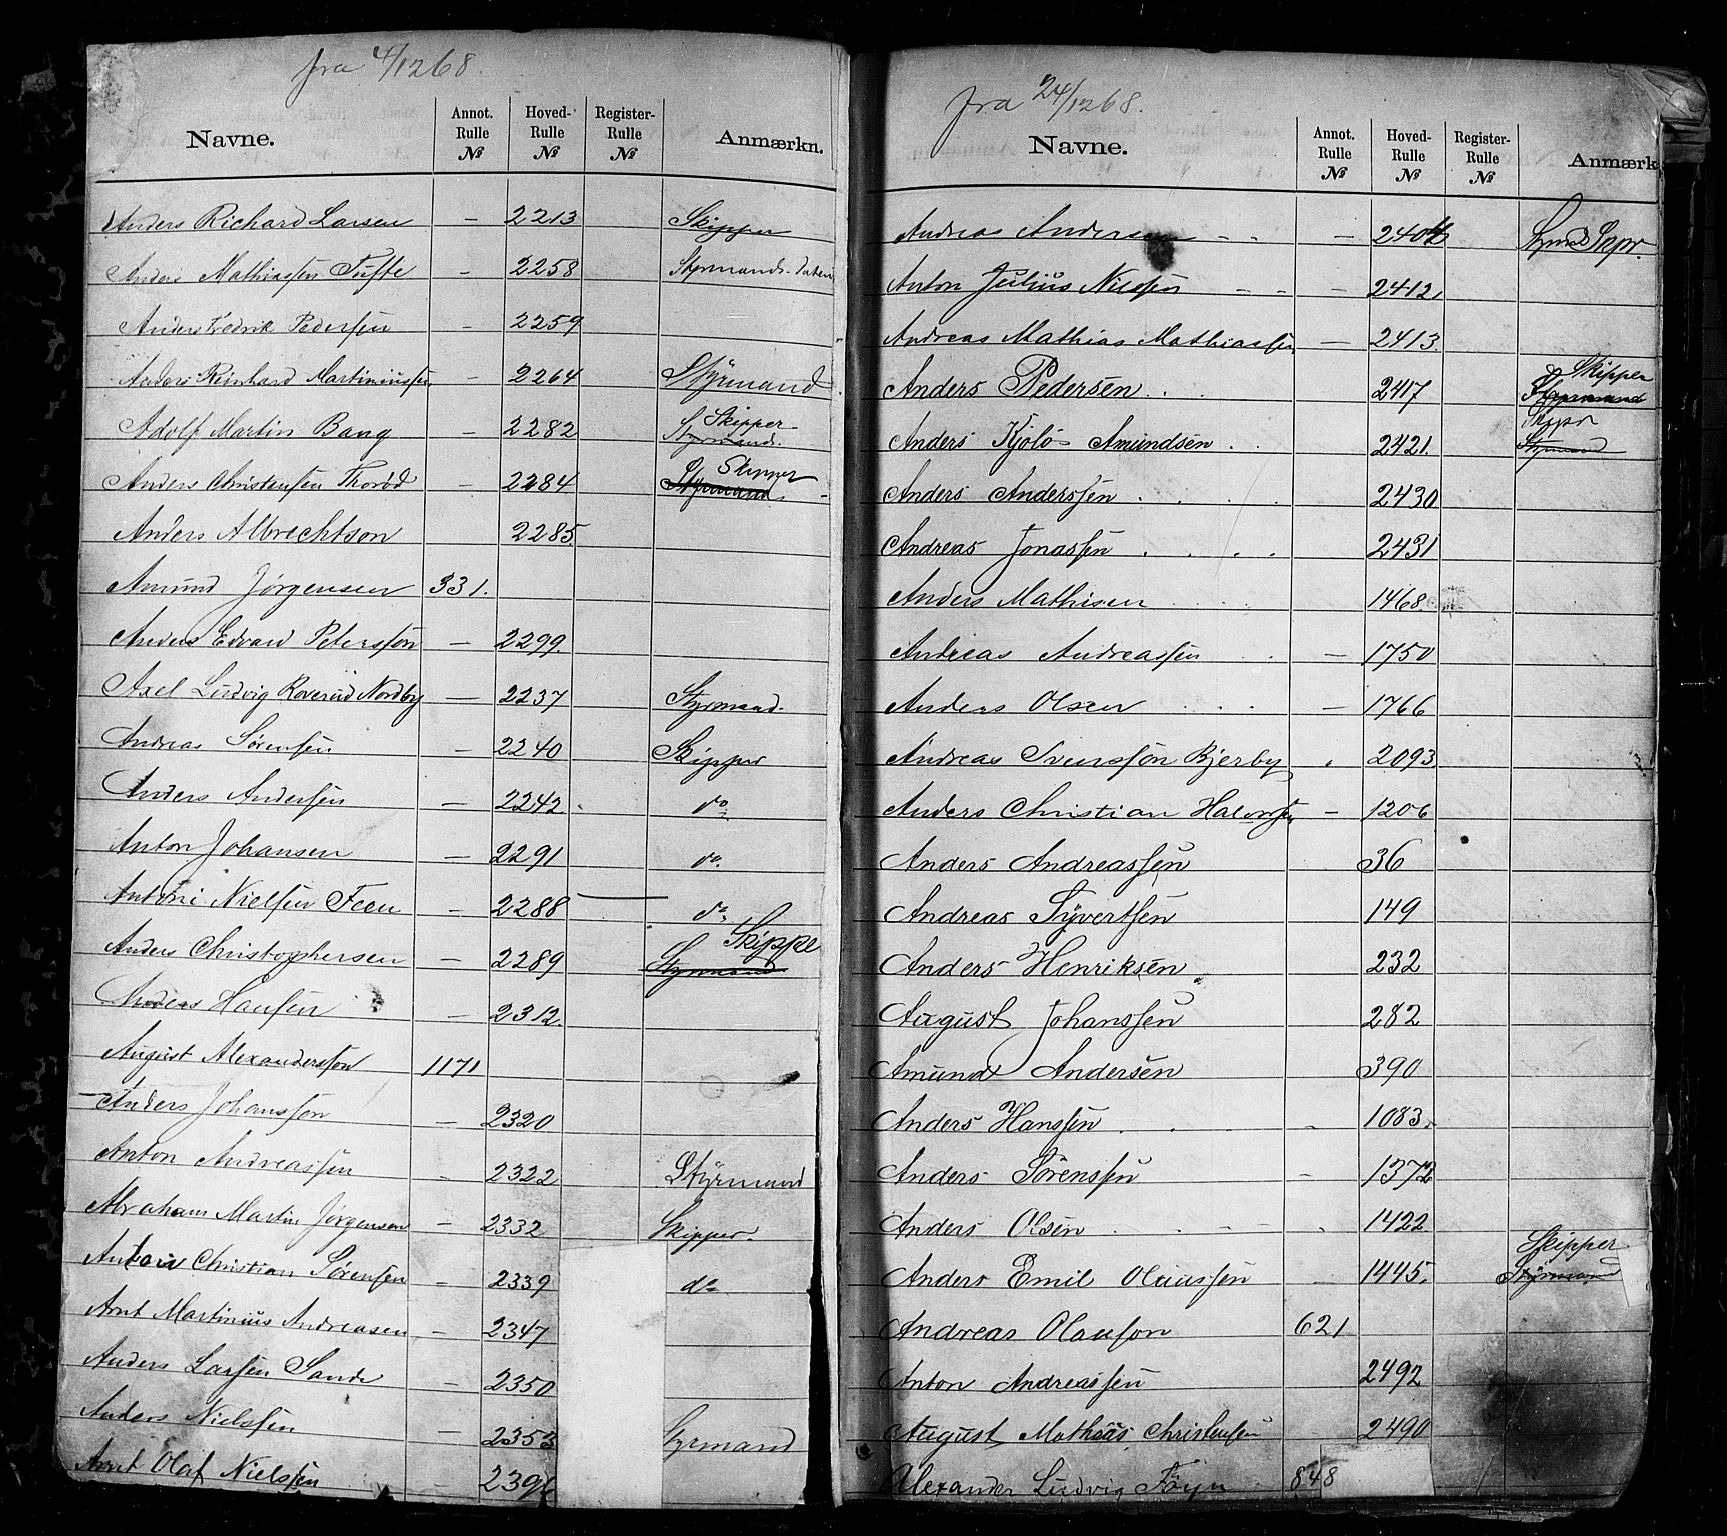 fra 4/12 68.
Navne. Annot. Rulle № Hoved-Rulle № Register-Rulle № Anmærkn.
Anders Richard Larsen — 2213 Skipper
Anders Mathiassen Tufte — 2258 Styrmands-
Anders Fredrik Pedersen — 2259
Anders Reinhard Martiniussen — 2264 Styrmand
Adolf Martin Bang — 2282 Styrmand. Skipper
Anders Christensen Thorød — 2284 Styrmand. Skipper
Anders Albrechtson 2285.
Amund Jørgensen 331.
Anders Edvard Petersson — 2299.
Axel Ludvig Roverud Nordby — 2237 Styrmand.
Andreas Sørensen — 2240 Skipper
Anders Andersen — 2242. do
Anton Johansen — 2291 do.
Antoni Nielsen Feen — 2288 do
Anders Christophersen — 2289 Styrmand Skipper
Andreas Hansen — 2312.
August Alexandersson 1171
Anders Johansson — 2320
Anton Andreassen — 2322 Styrmand
Abraham Martin Jørgensen — 2332 Skipper.
Anton Christian Sørensen — 2339 do
Arnt Martinius Andreasen — 2347
Anders Larsen Sande — 2350
Anders Nielssen — 2353 Styrmand
Arnt Olaf Nielssen — 2396
fra 24/12 68.
Navne. Annot. Rulle № Hoved-Rulle № Register-Rulle № Anmærk
Andreas Andersen — 2404 Skpr.
Anton Julius Nilssen — 2412
Andreas Mathias Mathiassen — 2413.
Anders Pedersen 2417 Styrmand Skipper
Anders Kjölö Amundsen 2421. Styrmand Skipr
Anders Anderssen 2430
Andreas Jonassen 2431
Anders Mathisen 1468.
Andreas Andreassen — 1750
Anders Olsen — 1766
Andreas Svensson Bjerby 2093
Anders Christian Halvorsen — 1206
Anders Andreassen 36
Andreas Syvertsen 149
Anders Henriksen 232
August Johanssen 282
Amund Andersen 390
Anders Hanssen 1083.
Anders Sörenssen — 1372
Anders Olsen 1422
Anders Emil Olaussen — 1445. Styrmand Skipper
Andreas Olauson 621
Anton Andreassen 2492
August Mathias Christensen 2490
Alexander Ludvig Föyn 848